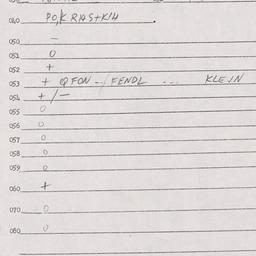 040 PO/K RIAS+KIH .
050 —
051 O
052 +
053 + QFON -- / FENDL --- KLEIN
054 + / —
055 O
056 O
057 O
058 O
059 O
060 +
070 O
080 O